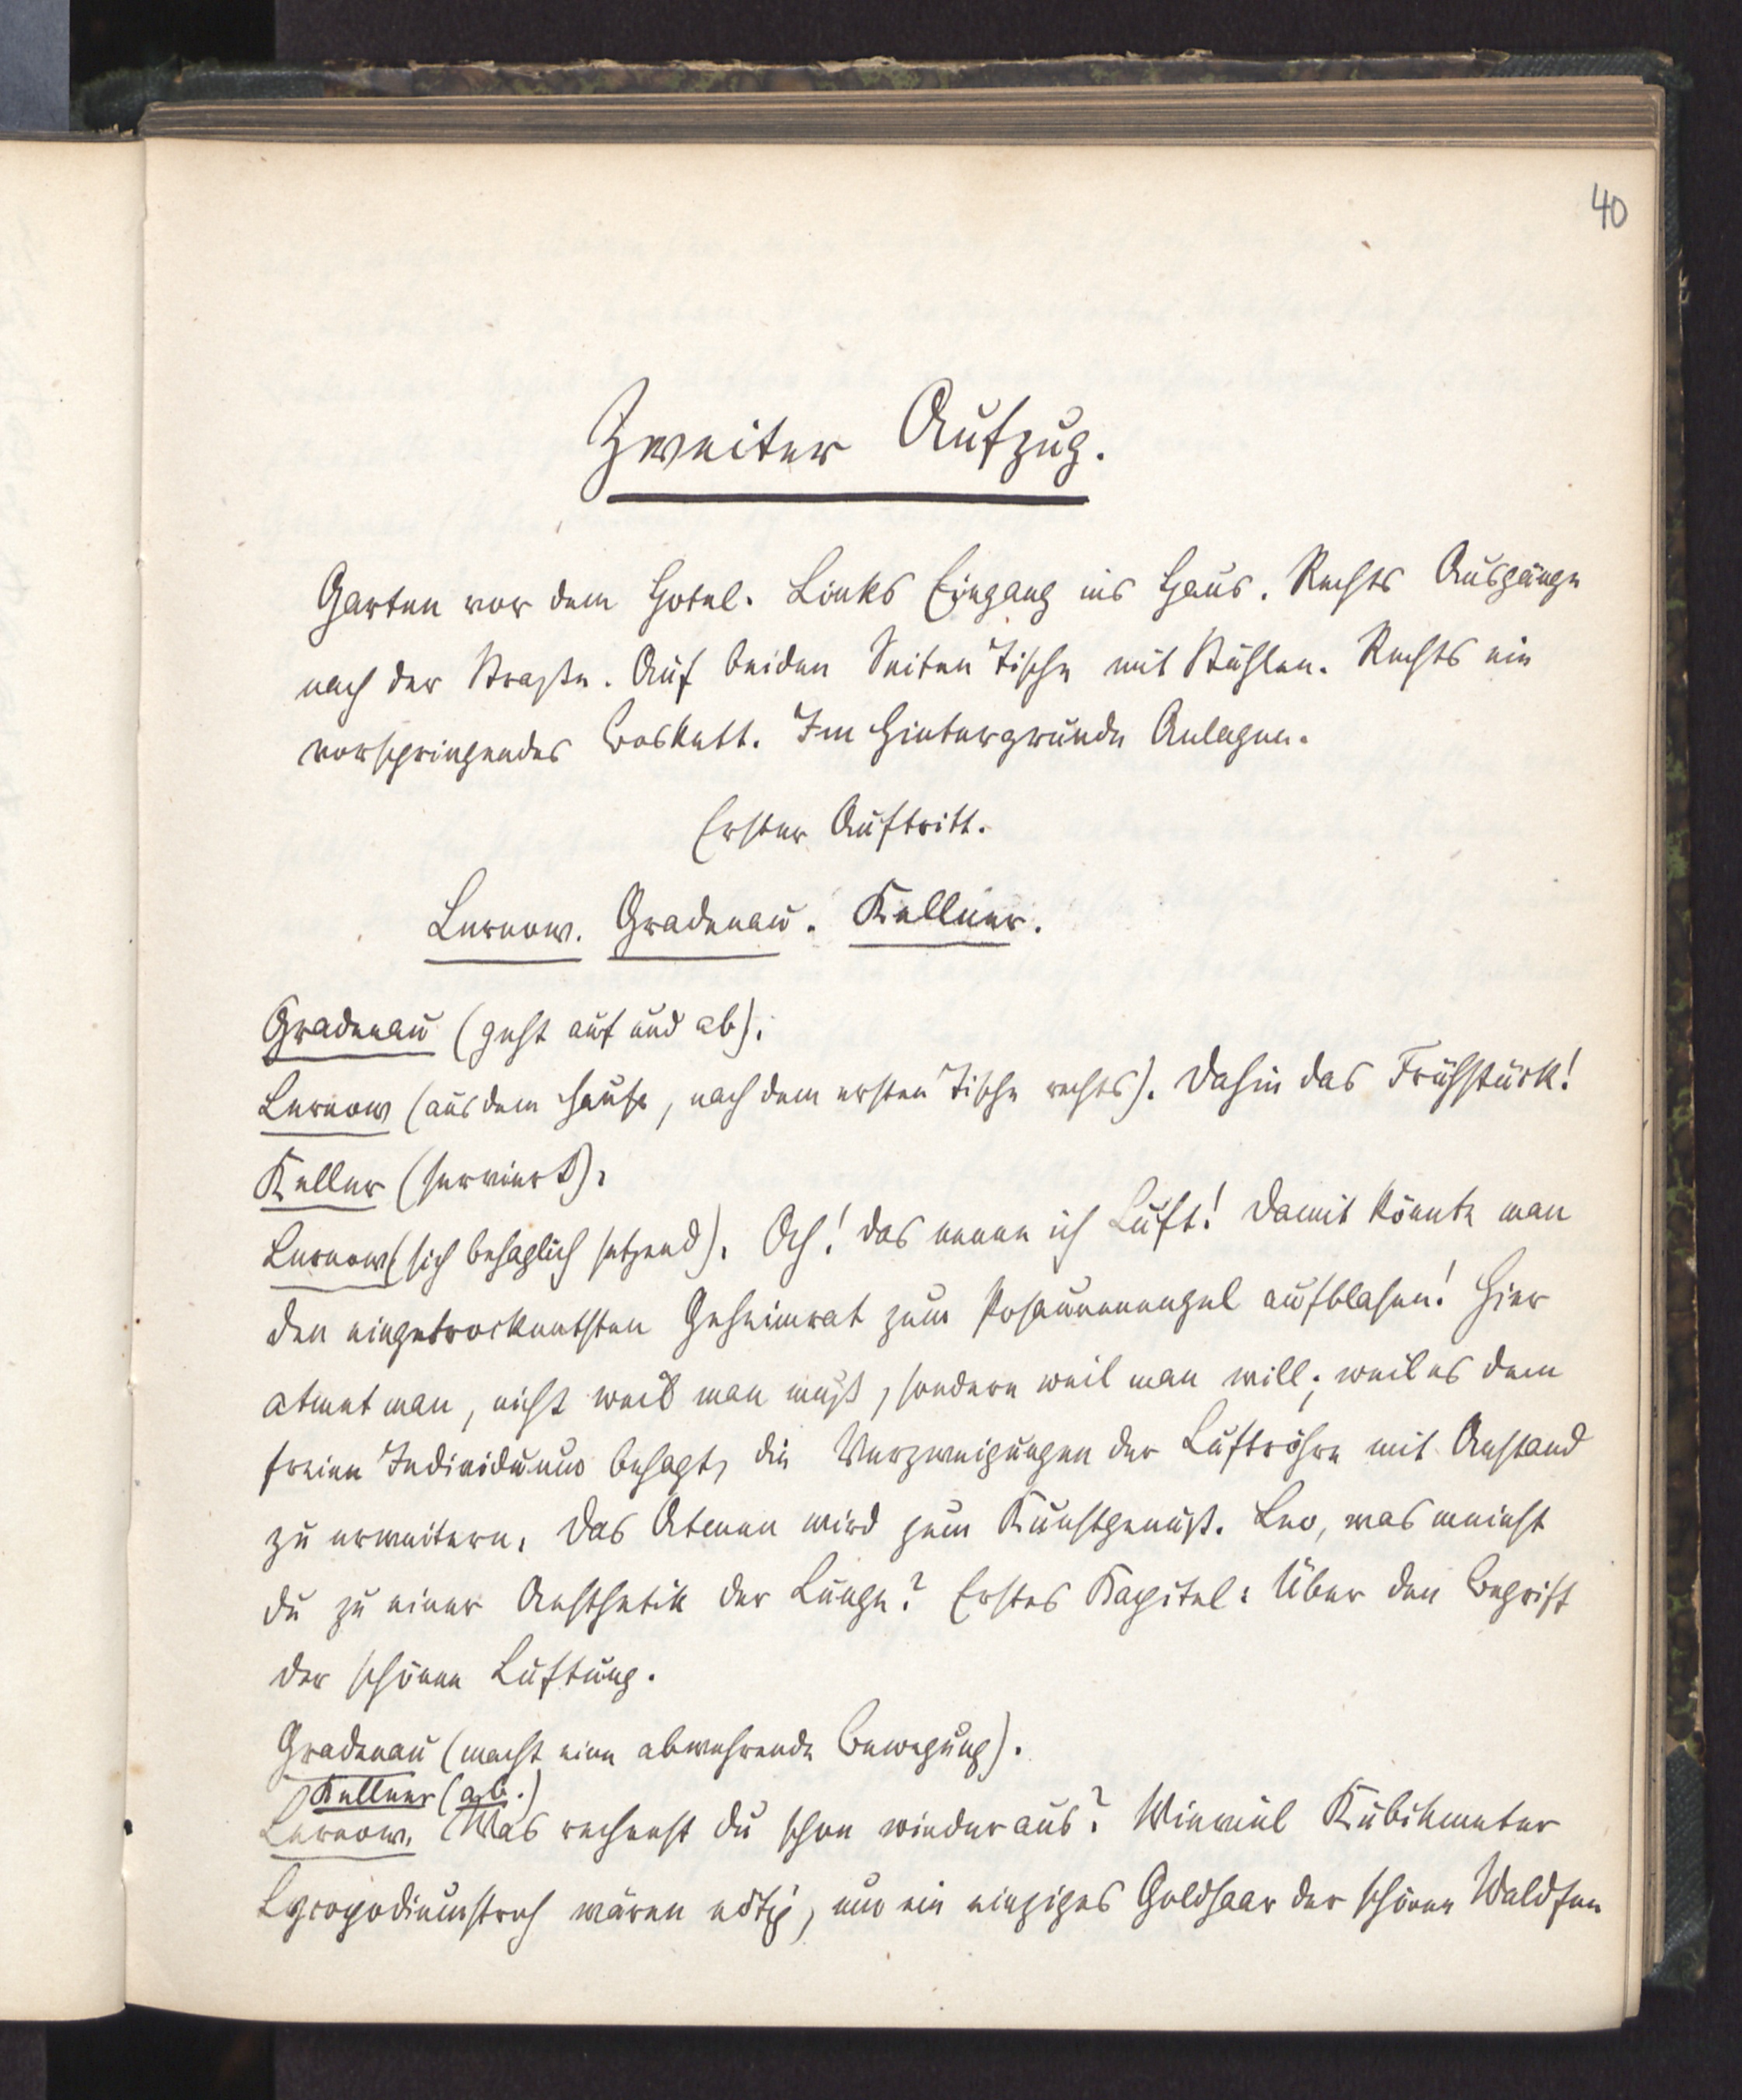 40
Zweiter Aufzug.
Garten vor dem Hotel. Links Eingang ins Haus. Rechts Ausgänge
nach der Straße. Auf beiden Seiten Tische mit Stühlen. Rechts ein
vorspringendes Boskett. Im Hintergrunde Anlagen.
Erster Auftritt.
Lernow. Gradenau. Kellner.
Gradenau (geht auf und ab).
Lernow (aus dem Hause, nach dem ersten Tische rechts). Dahin das Frühstück!
Keller (serviert).
Lernow (sich behaglich setzend). Ach! das nenne ich Luft! Damit könnte man
den eingetrocknetsten Geheimrat zum Posaunenengel aufblasen! Hier
atmet man, nicht weil man muß, sondern weil man will; weil es dem
freien Individuum behagt, die Verzweigungen der Luftröhre mit Anstand
zu erweitern. Das Atmen wird zum Kunstgenuß. Leo, was meinst
du zu einer Aesthetik der Lunge? Erstes Kapitel: Über den Begriff
der schönen Lüftung.
Gradenau (macht eine abwehrende Bewegung).
Kellner (ab.)
Lernow. Was rechnest du schon wieder aus? Wieviel Kubikmeter
Lycopodiumstroh wären nötig, um ein einziges Goldhaar der schönen Waldfee